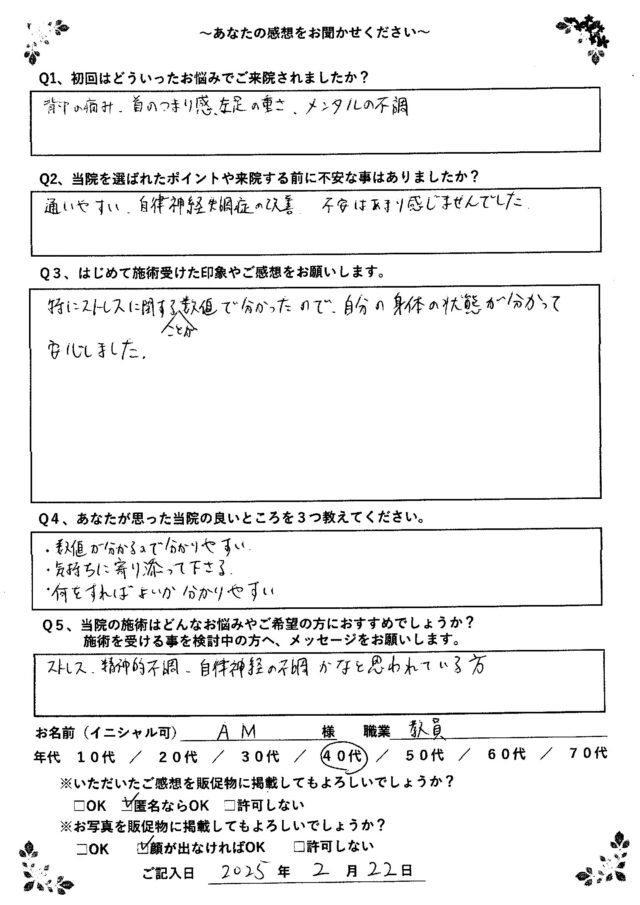 ~あなたの感想をお聞かせください~
Q1、初回はどういったお悩みでご来院されましたか？
背中の痛み、首のつまり感、左足の重さ、メンタルの不調
Q2、当院を選ばれたポイントや来院する前に不安な事はありましたか？
通いやすい、自律神経失調症の改善 不安はあまり感じませんでした.
Q３、はじめて施術受けた印象やご感想をお願いします。
特にストレスに関する数値で分かったので、自分の身体の状態が分かって
ことが
安心しました.
Q４、あなたが思った当院の良いところを３つ教えてください。
・数値が分かるので分かりやすい.
・気持ちに寄り添って下さる.
・何をすればよいか分かりやすい
Q５、当院の施術はどんなお悩みやご希望の方におすすめでしょうか？
施術を受ける事を検討中の方へ、メッセージをお願いします。
ストレス、精神的不調、自律神経の不調かなと思われている方
お名前（イニシャル可） AM 様 職業 教員
年代 １０代 ／ ２０代 ／ ３０代 ／ ４０代 ／ ５０代 ／ ６０代 ／ ７０代
※いただいたご感想を販促物に掲載してもよろしいでしょうか？
□OK ☑匿名ならOK □許可しない
※お写真を販促物に掲載してもよろしいでしょうか？
□OK ☑顔が出なければOK □許可しない
ご記入日 2025 年 2 月 22 日